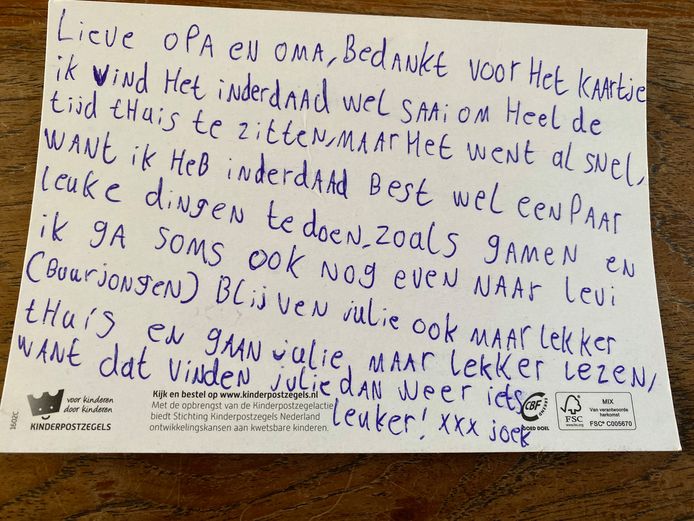 Lieve OPA en OMA, Bedankt voor Het kaartje
ik vind Het inderdaad wel saai om Heel de
tijd tHuis te zitten, maar Het went al snel,
want ik Heb inderdaad Best wel een paar
leuke dingen te doen, zoals gamen en
ik ga soms ook nog even naar levi
(Buurjongen) Blijven julie ook maar lekker
tHuis en gaan julie maar lekker lezen,
want dat vinden julie dan weer iets
leuker! xxx joek
voor kinderen
door kinderen
KINDERPOSTZEGELS
Kijk en bestel op www.kinderpostzegels.nl
Met de opbrengst van de Kinderpostzegelactie
biedt Stichting Kinderpostzegels Nederland
ontwikkelingskansen aan kwetsbare kinderen.
CBF
GOED DOEL
FSC
MIX
Van verantwoorde
herkomst
FSC® C005670